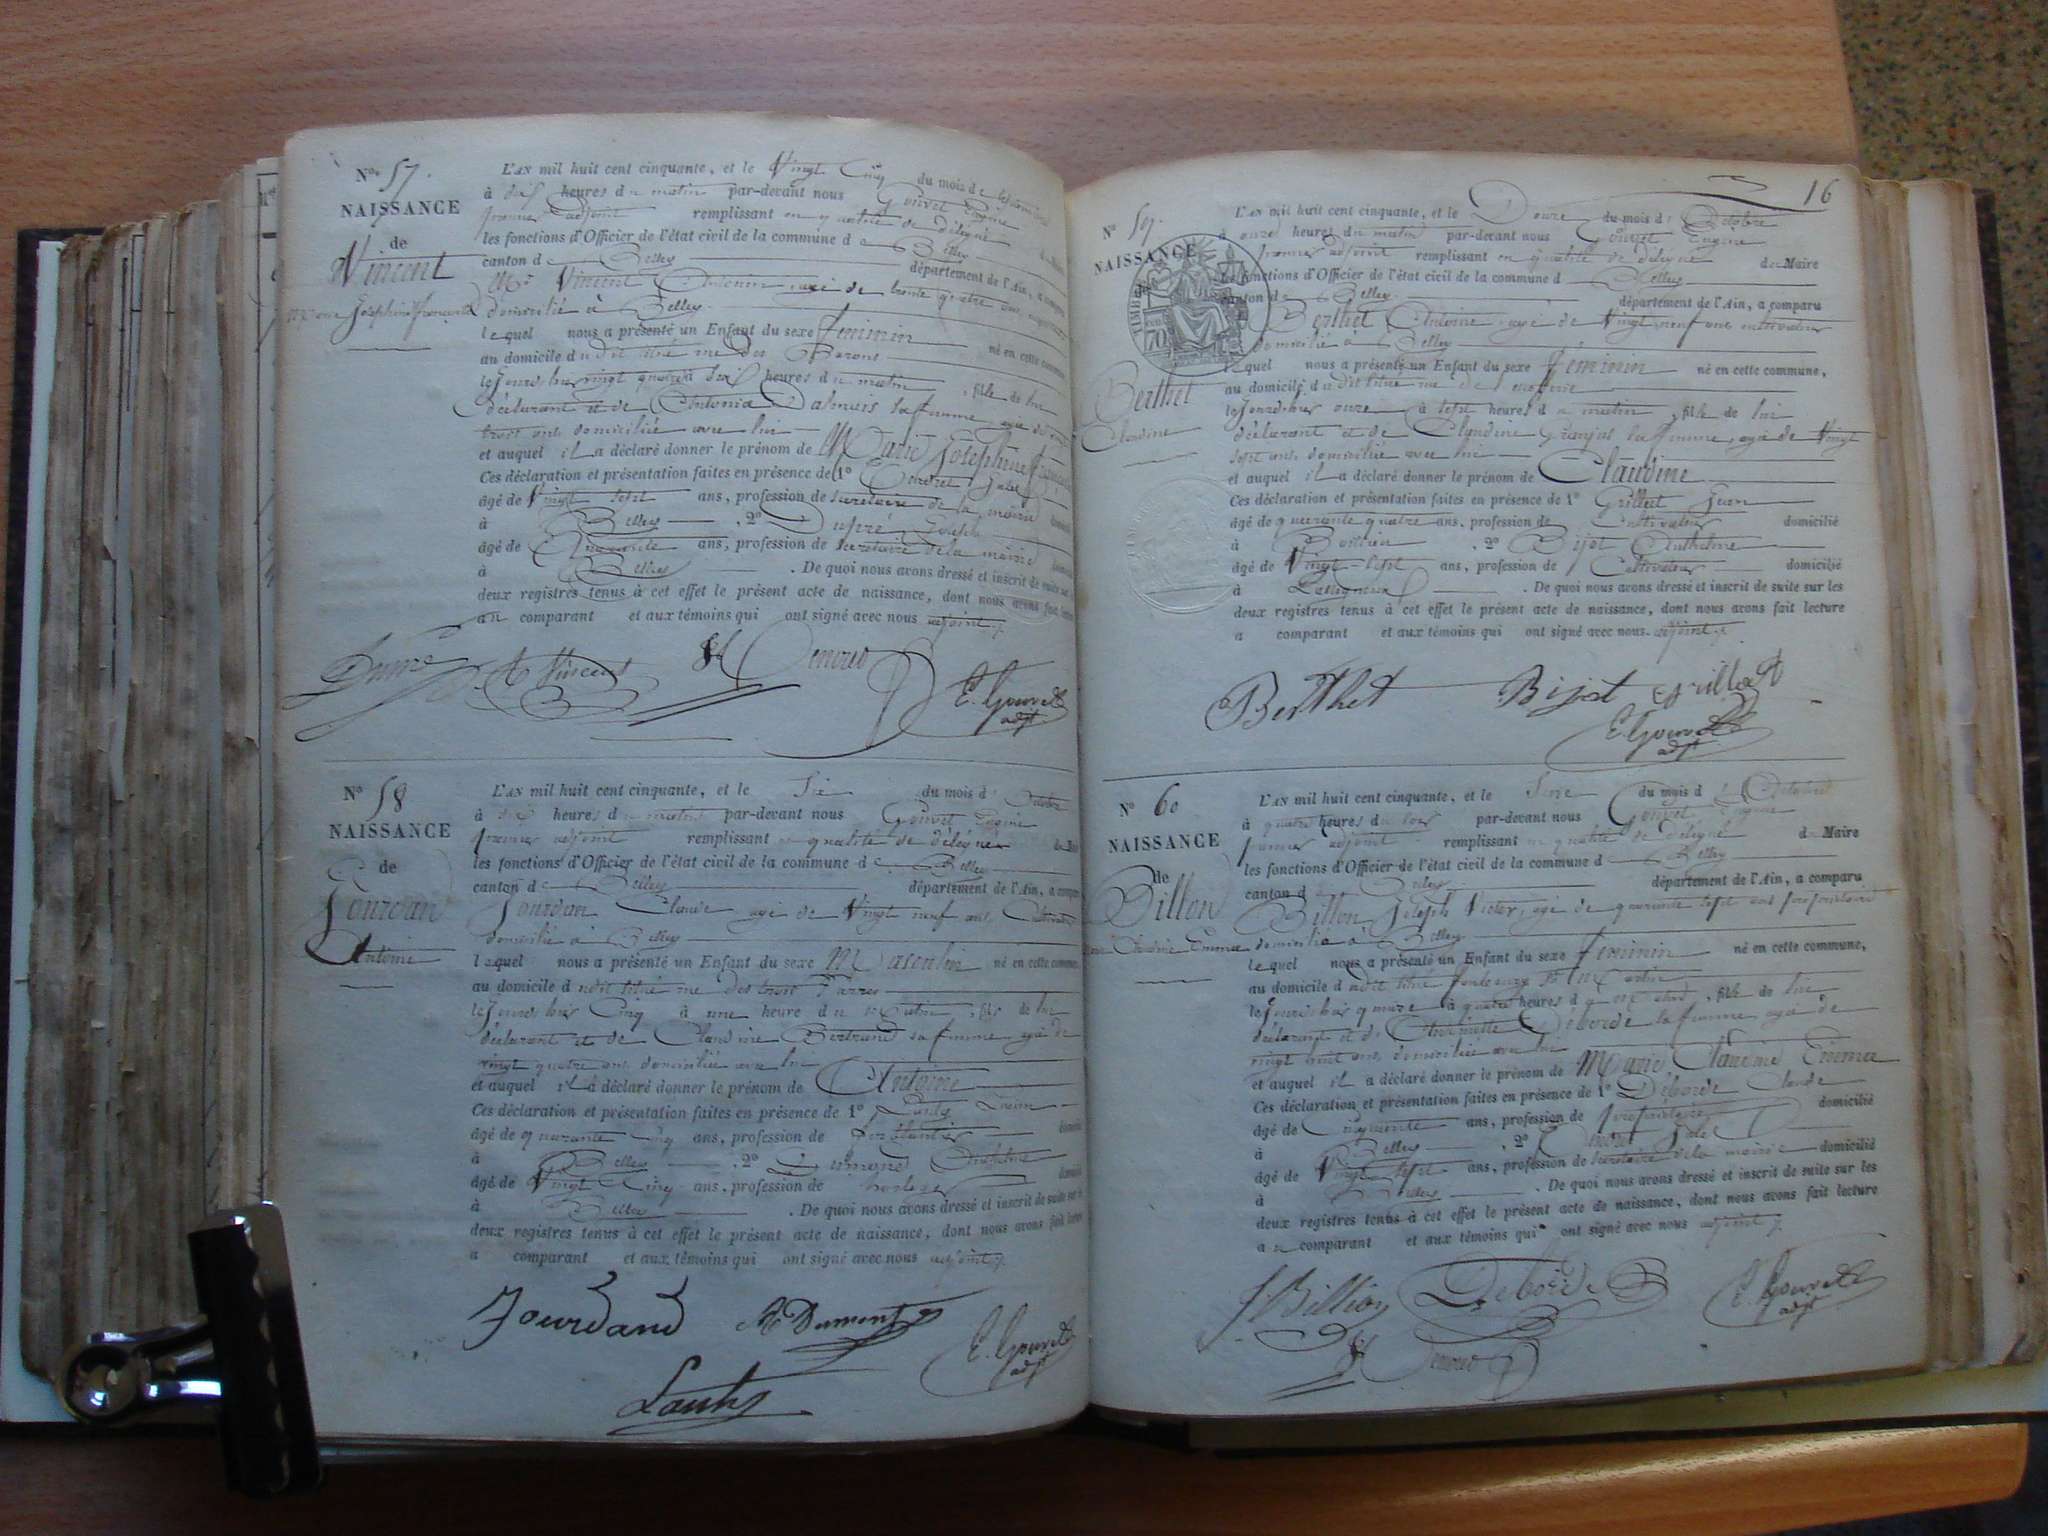 N° 57.
NAISSANCE
de
Vincent
Marie Joséphine Françoise
L'AN mil huit cent cinquante, et le Vingt Cinq du mois de Septembre
à dix heures du matin par-devant nous Gouvet Eugène
premier adjoint remplissant en qualité de délégué
les fonctions d'Officier de l'état civil de la commune de Belley
canton de Belley département de l'Ain, a comparu
Mr Vincent Antonin, agé de trente quatre ans,
domicilié à Belley
lequel nous a présenté un Enfant du sexe féminin né en cette commune
au domicile du dit situé rue des Barons
le jourdhier vingt quatre à dix heures du matin, fille de lui
déclarant et de Antonia sa femme, agée de
trois ans domiciliée avec lui
et auquel il a déclaré donner le prénom de Marie Joséphine Françoise
Ces déclaration et présentation faites en présence de 1°
âgé de Vingt sept ans, profession de secrétaire de la mairie
à Belley 2° Dupré Joseph
âgé de Cinquante ans, profession de secrétaire de la mairie
à Belley . De quoi nous avons dressé et inscrit de suite
deux registres tenus à cet effet le présent acte de naissance, dont nous avons fait lecture
au comparant et aux témoins qui ont signé avec nous adjoint
Dupré A Vincent E. Gouvet
adjt
N° 58
NAISSANCE
de
Jourdan
Antoine
L'AN mil huit cent cinquante, et le Six du mois d' Octobre
à dix heures du matin par-devant nous Gouvet Eugène
premier adjoint remplissant en qualité de délégué
les fonctions d'Officier de l'état civil de la commune de Belley
canton de Belley département de l'Ain, a comparu
Jourdan Claude agé de Vingt neuf ans, Cultivateur
domicilié à Belley
lequel nous a présenté un Enfant du sexe Masculin né en cette commune
au domicile du dit situé rue des trois
le jourdhier Cinq à une heure du Matin, fils de lui
déclarant et de Claudine Bertrand sa femme agée de
vingt quatre ans domiciliée avec lui
et auquel il a déclaré donner le prénom de Antoine
Ces déclaration et présentation faites en présence de 1°
âgé de quarante cinq ans, profession de ferblantier
à Belley 2° Dumond Anthelme
âgé de Vingt Cinq ans, profession de horloger
à Belley . De quoi nous avons dressé et inscrit de suite sur
deux registres tenus à cet effet le présent acte de naissance, dont nous avons fait lecture
a comparant et aux témoins qui ont signé avec nous adjoint
Jourdand A Dumont E. Gouvet
adjt
16
N° 59.
NAISSANCE
de
Berthet
Claudine
L'AN mil huit cent cinquante, et le Douze du mois d' Octobre
à onze heures du matin par-devant nous Gouvet Eugène
premier adjoint remplissant en qualité de délégué du Maire
les fonctions d'Officier de l'état civil de la commune d Belley
canton d Belley département de l'Ain, a comparu
Berthet Antoine, agé de Vingt neuf ans cultivateur
domicilié à Belley
lequel nous a présenté un Enfant du sexe féminin né en cette commune,
au domicile du dit situé rue de
le jourdhier onze à sept heures du matin, fille de lui
déclarant et de Claudine sa femme, agée de Vingt
sept ans domiciliée avec lui
et auquel il a déclaré donner le prénom de Claudine
Ces déclaration et présentation faites en présence de 1° Grillet Jean
âgé de quarante quatre ans, profession de Cultivateur domicilié
à 2° Bijot Anthelme
âgé de Vingt-Sept ans, profession de Cultivateur domicilié
à . De quoi nous avons dressé et inscrit de suite sur les
deux registres tenus à cet effet le présent acte de naissance, dont nous avons fait lecture
a comparant et aux témoins qui ont signé avec nous. adjoint
Berthet Bijot Grillet
E. Gouvet
adjt
N° 60
NAISSANCE
de
Billon
Marie Claudine Emma
L'AN mil huit cent cinquante, et le Seize du mois d' Octobre
à quatre heures du soir par-devant nous Gouvet Eugène
premier adjoint remplissant en qualité de délégué du Maire
les fonctions d'Officier de l'état civil de la commune de Belley
canton d Belley département de l'Ain, a comparu
Billon Joseph Victor, agé de quarante sept ans propriétaire
domicilié à Belley
lequel nous a présenté un Enfant du sexe féminin né en cette commune,
au domicile du dit situé St Martin
le jourdhier quinze à quatre heures du Matin, fille de lui
déclarant et de Deborde sa femme agée de
vingt huit ans domiciliée avec lui
et auquel il a déclaré donner le prénom de Marie Claudine Emma
Ces déclaration et présentation faites en présence de 1° Deborde Claude
âgé de Cinquante ans, profession de propriétaire domicilié
à Belley 2°
âgé de Vingt-Sept ans, profession de secrétaire de la mairie domicilié
à Belley . De quoi nous avons dressé et inscrit de suite sur les
deux registres tenus à cet effet le présent acte de naissance, dont nous avons fait lecture
au comparant et aux témoins qui ont signé avec nous adjoint
J. Billion Deborde E. Gouvet
adjt